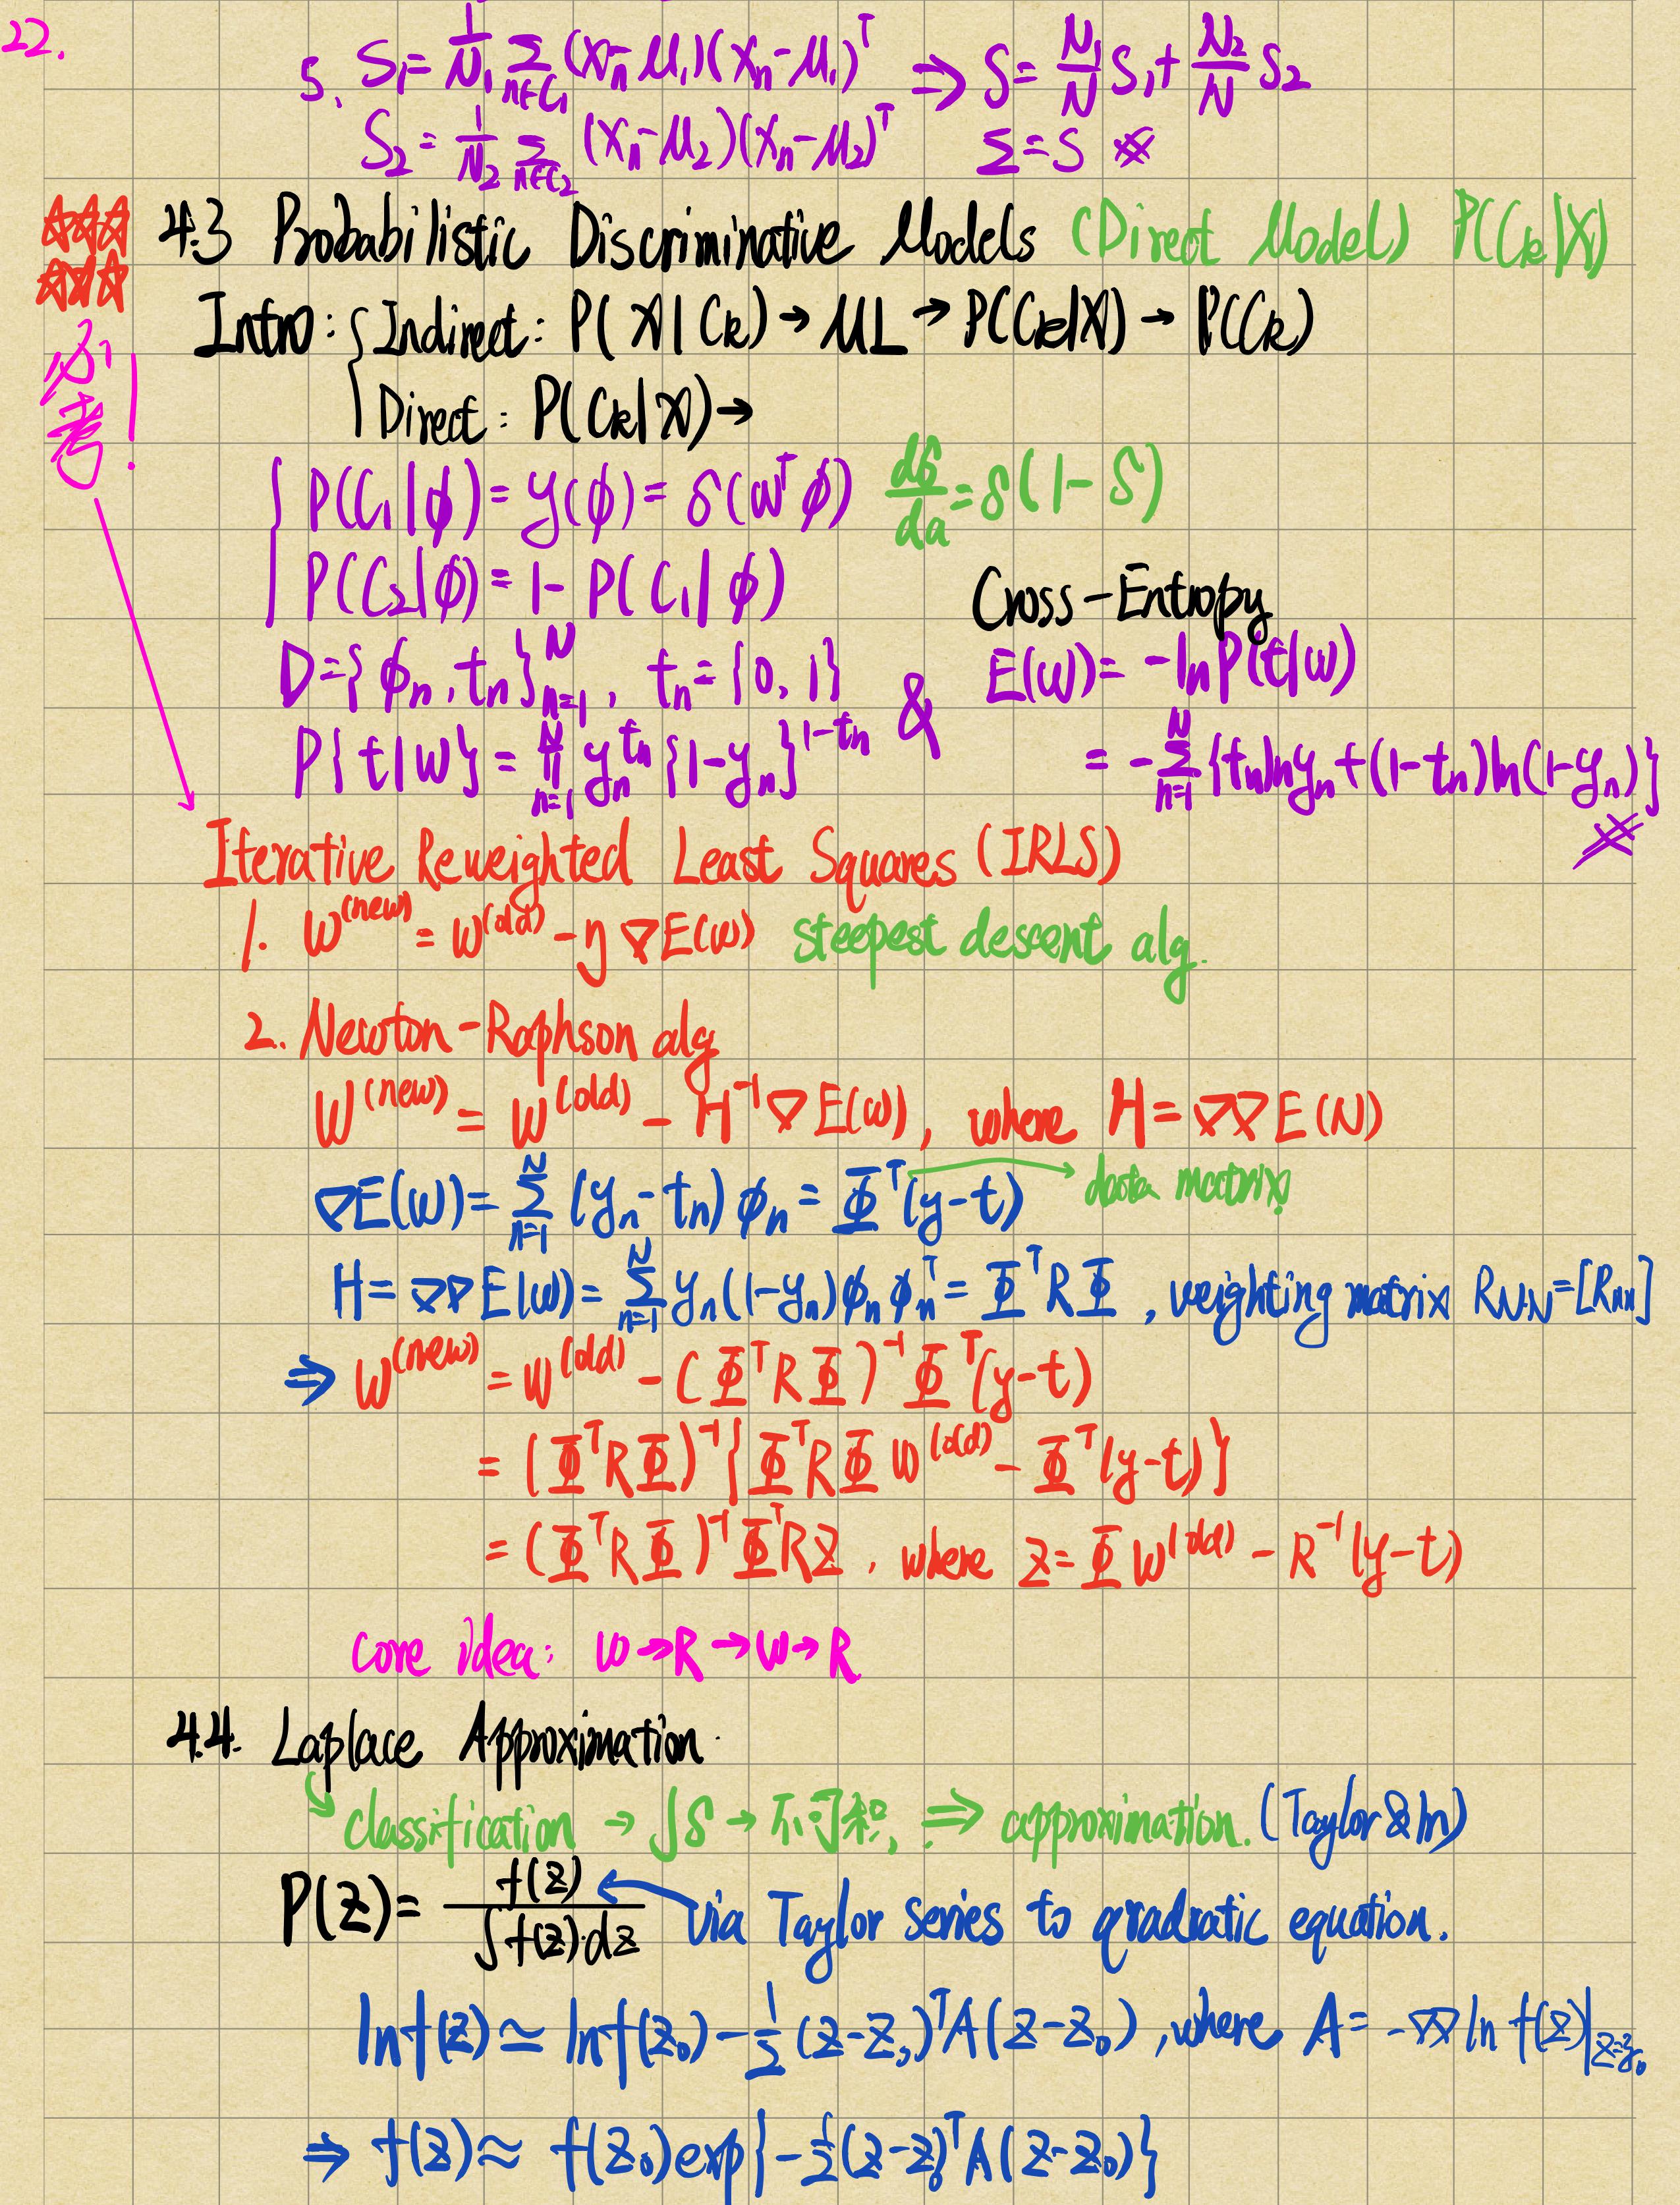 22.
5. S₁ = 1/N₁ Σ_{n∈C₁} (Xn-μ₁)(Xn-μ₁)^T ⇒ S = N₁/N S₁ + N₂/N S₂
S₂ = 1/N₂ Σ_{n∈C₂} (Xn-μ₂)(Xn-μ₂)^T Σ = S ※
☆☆☆
☆☆☆
必考!
4.3 Probabilistic Discriminative Models (Direct Model) P(Ck|X)
Intro: { Indirect: P(X|Ck) → ML → P(Ck|X) → P(Ck)
Direct: P(Ck|X) →
{ P(C₁|ϕ) = y(ϕ) = δ(w^T ϕ) dδ/da = δ(1-δ)
P(C₂|ϕ) = 1 - P(C₁|ϕ)
Cross-Entropy
D = {ϕn, tn}_{n=1}^N, tn = {0, 1} & E(w) = -ln P(t|w)
P{t|w} = Π_{n=1}^N yn^{tn} {1-yn}^{1-tn} = -Σ_{n=1}^N {tn ln yn + (1-tn) ln(1-yn)} ※
Iterative Reweighted Least Squares (IRLS)
1. W^(new) = W^(old) - η∇E(w) steepest descent alg.
2. Newton-Raphson alg
W^(new) = W^(old) - H^-1 ∇E(w), where H = ∇∇E(N)
∇E(w) = Σ_{n=1}^N (yn-tn) ϕn = Φ^T(y-t) → data matrix
H = ∇∇E(w) = Σ_{n=1}^N yn(1-yn) ϕn ϕn^T = Φ^T R Φ, weighting matrix R_{N·N} = [Rnn]
⇒ W^(new) = W^(old) - (Φ^T R Φ)^-1 Φ^T(y-t)
= (Φ^T R Φ)^-1 {Φ^T R Φ W^(old) - Φ^T(y-t)}
= (Φ^T R Φ)^-1 Φ^T R Z, where Z = Φ W^(old) - R^-1(y-t)
core idea: W → R → W → R
4.4. Laplace Approximation.
classification → ∫δ → 不可积 ⇒ approximation. (Taylor & ln)
P(Z) = f(Z) / ∫f(Z)·dZ ← via Taylor series to qradratic equation.
ln f(Z) ≃ ln f(Z₀) - 1/2 (Z-Z₀)^T A (Z-Z₀), where A = -∇∇ ln f(Z)|_{Z=Z₀}
⇒ f(Z) ≈ f(Z₀) exp{-1/2 (Z-Z₀)^T A (Z-Z₀)}